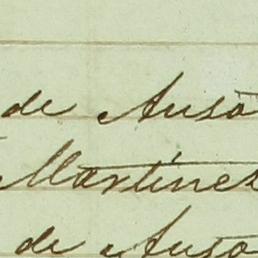 de Auso
Martinez
de Auso